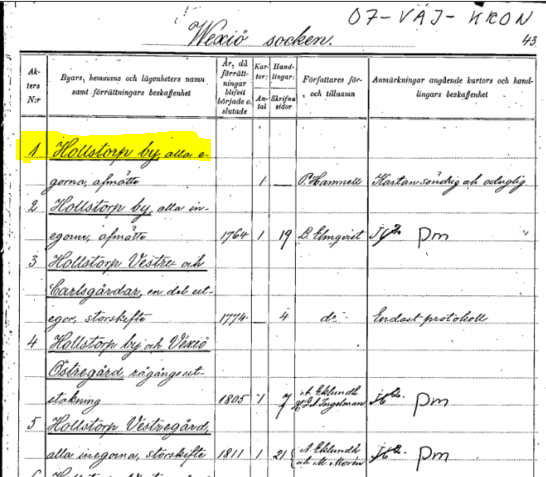 07-VÄJ-KRON
Wexiö socken.
43.
Akters N:r
Byars, hemmans och lägenheters namn samt förrättningars beskaffenhet
År, då förrättningar blifvit började o. slutade
Kartor: Antal
Handlingar: Skrifna sidor
Författares för- och tillnamn
Anmärkningar angående kartors och handlingars beskaffenhet
1 Hollstorp by, alla e-
gorna, afmätte 1 P. Hamnell Kartan söndrig och oduglig
2 Hollstorp by, alla in-
egorne, afmätte 1764 1 19 D. Elmqvist pm
3 Hollstorp Vestre och
Carlsgårdar, en del ut-
egor, storskifte 1774 4 d:o Endast protokoll
4 Hollstorp by och Vexiö
Östregård, rågångsut-
stakning 1805 1 7 A. Eklundh pm
5 Hollstorp Vestregård,
alla inegorna, storskifte 1811 1 21 A. Eklundh och M. Morén pm